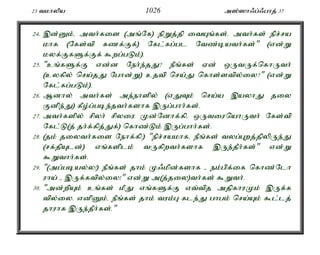 23 வமாலிய 1026 அஸ்ஸாஃப்ஃபாத் 37
24. இன்னும், அவர்களை (அங்கே) நிறுத்தி வையுங்கள். அவர்கள் நிச்சய
மாக (கேள்வி கணக்குக்) கேட்கப்பட வேண்டியவர்கள்" (என்று
மலக்குகளுக்குக் கூறப்படும்).
25. "உங்களுக்கு என்ன நேர்ந்தது? நீங்கள் ஏன் ஒருவருக்கொருவர்
(உலகில் செய்தது போன்று) உதவி செய்து கொள்ளவில்லை?" (என்று
கேட்கப்படும்).
26. ஆனால் அவர்கள் அந்நாளில் (எதுவும் செய்ய இயலாது தலை
குனிந்து) கீழ்ப்படிந்தவர்களாக இருப்பார்கள்.
27. அவர்களில் சிலர் சிலரை முன்னோக்கி, ஒருவரையொருவர் கேள்வி
கேட்டு(த் தர்க்கித்துக்) கொண்டும் இருப்பார்கள்.
28. (தம் தலைவர்களை நோக்கி) "நிச்சயமாக, நீங்கள் வலப்புறத்திலிருந்து
(சக்தியுடன்) எங்களிடம் வருகிறவர்களாக இருந்தீர்கள்" என்று
கூறுவார்கள்.
29. "(அப்படியல்ல;) நீங்கள் தாம் முஃமின்களாக - நம்பிக்கை கொண்டோ
ராய் - இருக்கவில்லை!" என்று அ(த்தலை)வர்கள் கூறுவர்.
30. "அன்றியும் உங்கள் மீது எங்களுக்கு எவ்வித அதிகாரமும் இருக்க
வில்லை. எனினும், நீங்கள் தாம் வரம்பு கடந்து பாபம் செய்யும் கூட்டத்
தாராக இருந்தீர்கள்."